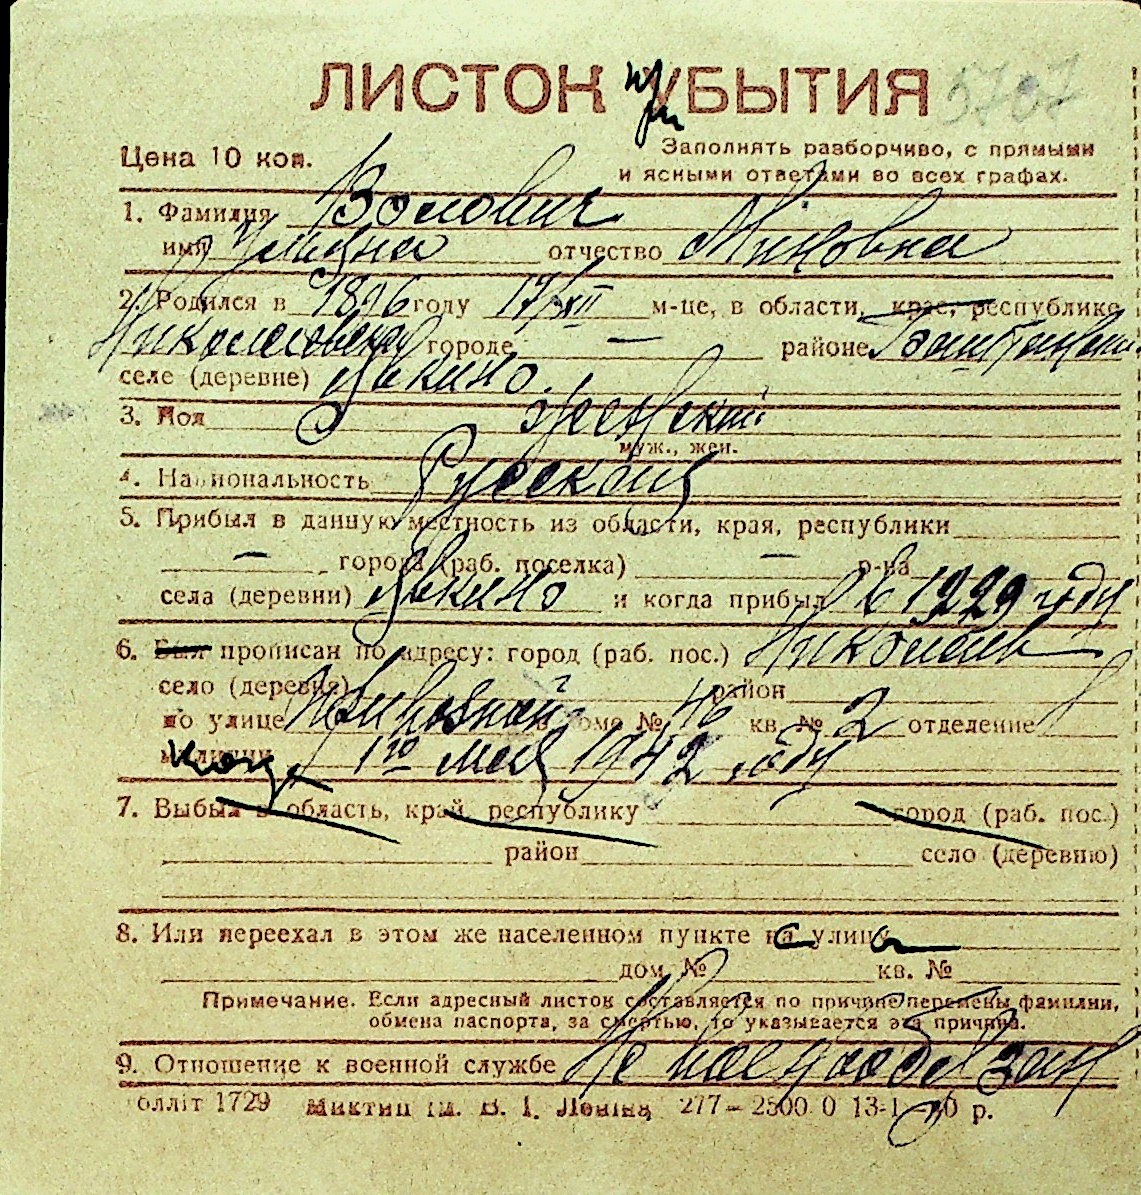 ЛИСТОК УБЫТИЯ
при
5707
Цена 10 коп.
Заполнять разборчиво, с прямыми
и ясными ответами во всех графах.
1. Фамилия Волович
имя отчество Миновна
2. Родился в 1896 году 17/XII м-це, в области, крае, республике
Николаевская городе — районе
селе (деревне) Явкино
3. Пол женский
муж., жен.
4. Национальность Русская
5. Прибыл в данную местность из области, края, республики
— города (раб. поселка) — р-на
села (деревни) Явкино и когда прибыл в 1929 году
6. Был прописан по адресу: город (раб. пос.) Николаев
село (деревня) район
по улице в доме № 46 кв. № 2 отделение
милиции 1го мая 1942 году
7. Выбыл в область, край, республику город (раб. пос.)
район село (деревню)
8. Или переехал в этом же населенном пункте на улицу
дом № кв. №
Примечание. Если адресный листок составляется по причине перемены фамилии,
обмена паспорта, за смертью, то указывается эта причина.
9. Отношение к военной службе Не военнообязан
блліт 1729 Миктип ім. В. І. Леніна 277—2500 0 13-1 р.